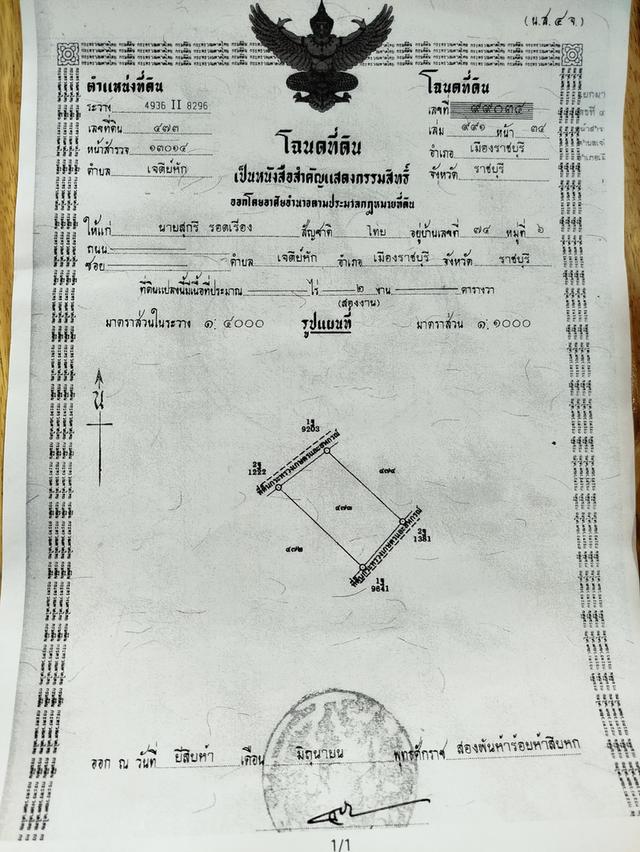 (น.ส.๔ จ.)
ตำแหน่งที่ดิน
ระวาง 4936 II 8296
เลขที่ดิน ๔๗๓
หน้าสำรวจ ๑๓๐๑๔
ตำบล เจดีย์หัก
โฉนดที่ดิน
เลขที่ ๙๙๐๓๔
เล่ม ๙๙๑ หน้า ๓๔
อำเภอ เมืองราชบุรี
จังหวัด ราชบุรี
โฉนดที่ดิน
เป็นหนังสือสำคัญแสดงกรรมสิทธิ์
ออกโดยอาศัยอำนาจตามประมวลกฎหมายที่ดิน
ให้แก่ นายสุกรี รอดเรือง สัญชาติ ไทย อยู่บ้านเลขที่ ๗๔ หมู่ที่ ๖
ถนน
ซอย ตำบล เจดีย์หัก อำเภอ เมืองราชบุรี จังหวัด ราชบุรี
ที่ดินแปลงนี้มีเนื้อที่ประมาณ ไร่ ๒ งาน ตารางวา
(สองงาน)
มาตราส่วนในระวาง ๑:๔๐๐๐ รูปแผนที่ มาตราส่วน ๑:๑๐๐๐
น
1ฐ
9203
2ฐ
1222
๔๗๔
๔๗๓
๔๗๒
2ฐ
1381
1ฐ
9641
ออก ณ วันที่ ยี่สิบห้า เดือน มิถุนายน พุทธศักราช สองพันห้าร้อยห้าสิบหก
1/1